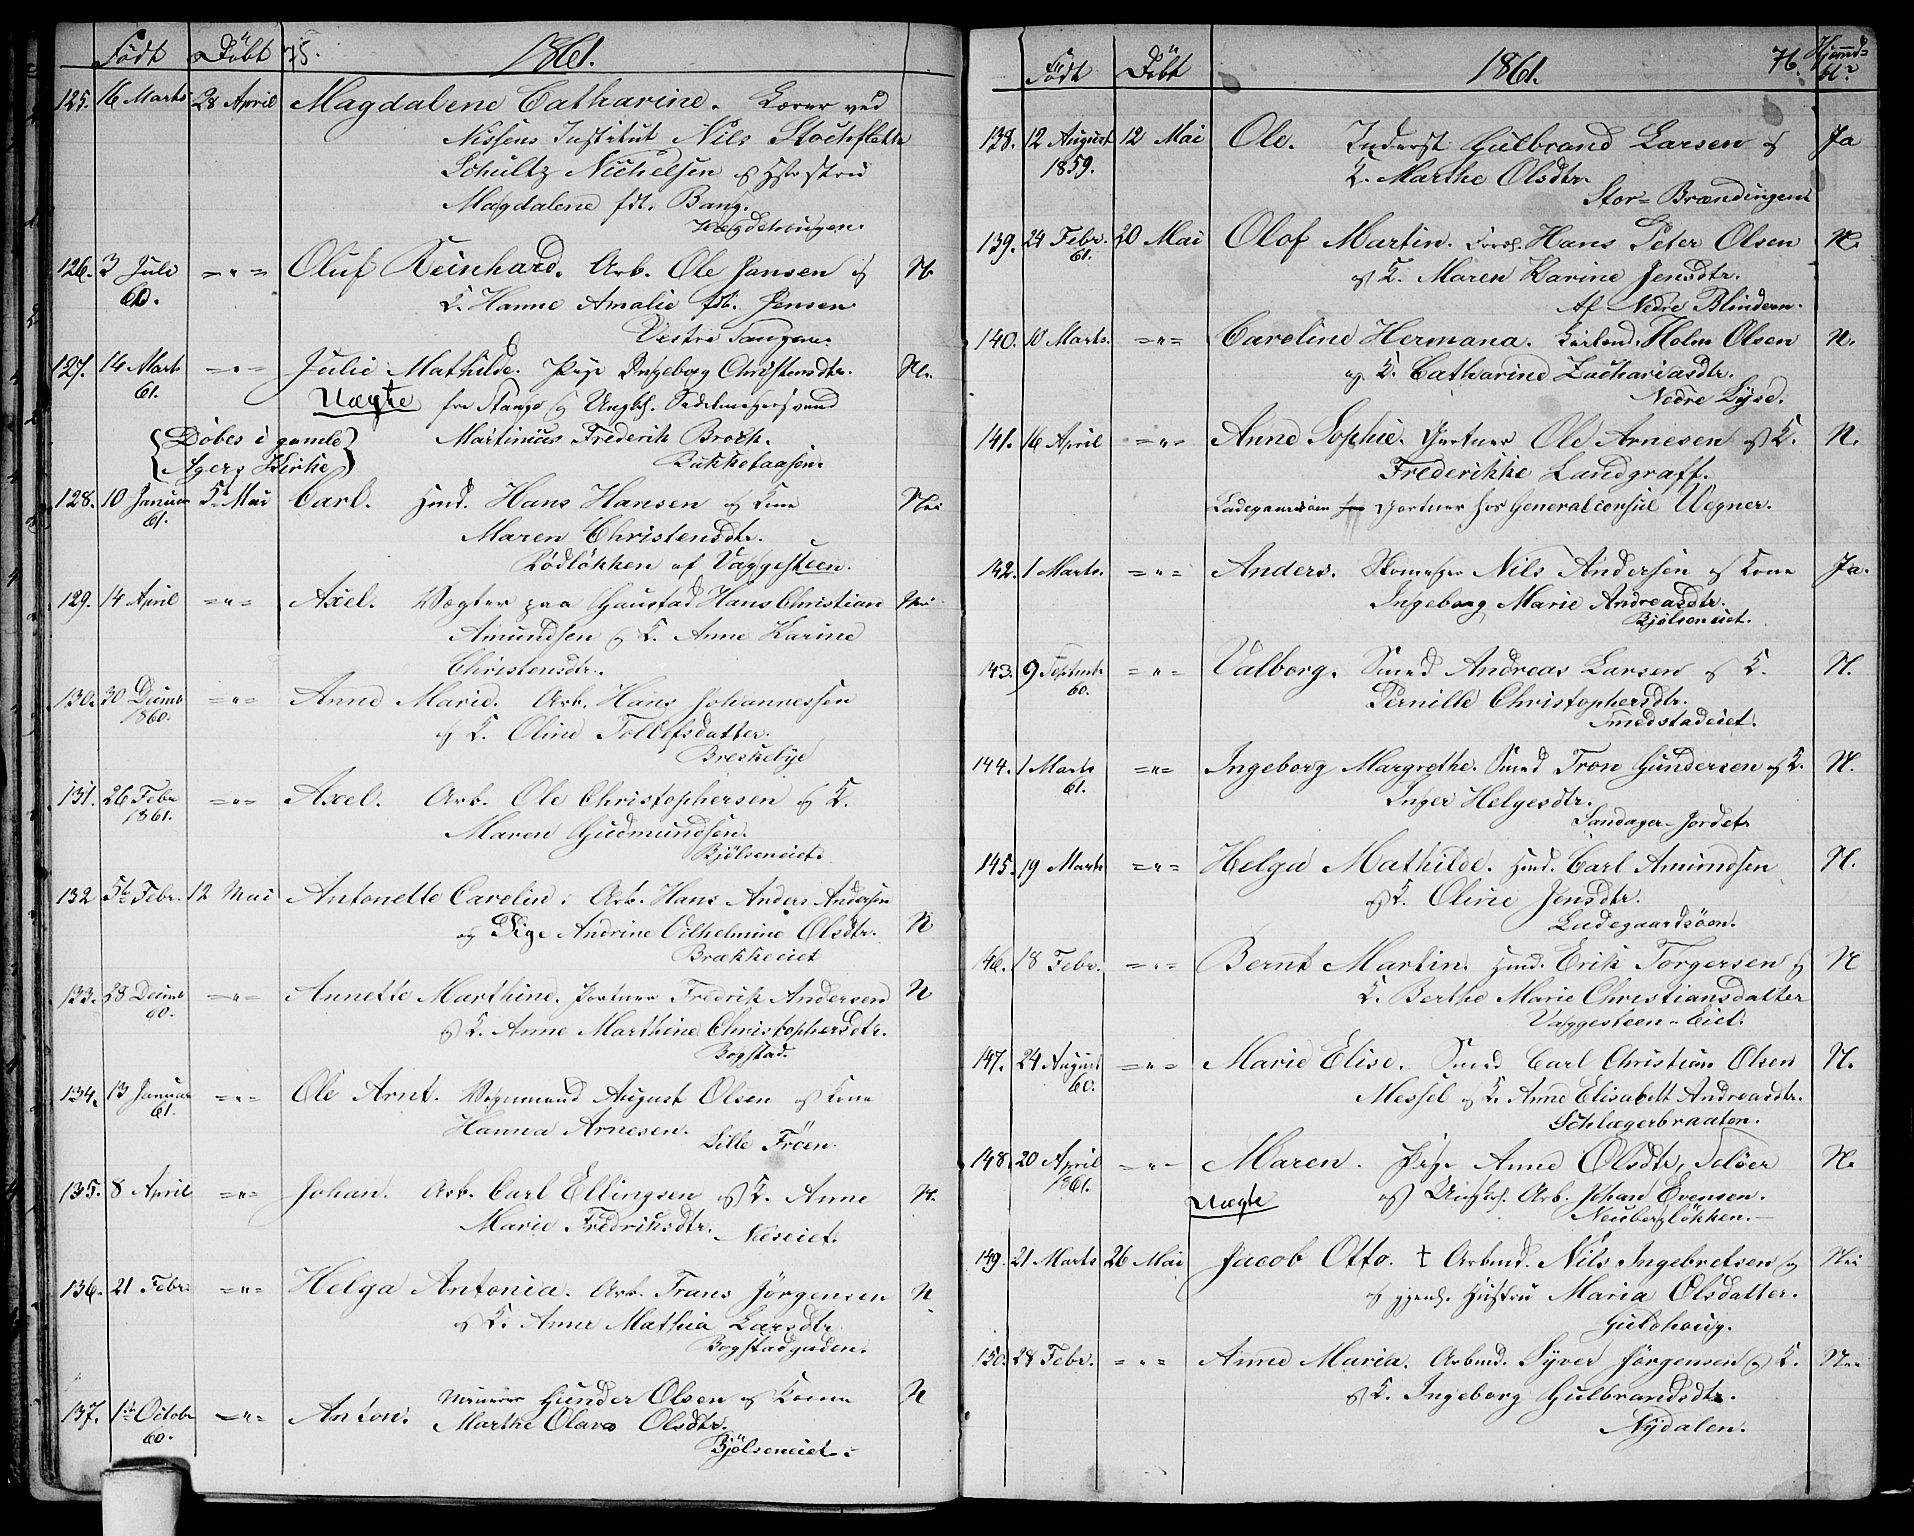 Födt Döbt 75. 1861.
125. 16 Marts 28 April Magdalene Catharine. Lærer ved
Nissens Institut Nils Stockfleth
Schultz Michelsen og Hustru
Magdalene fdt. Bang.
Hægdehougen.
126. 3 Juli 60. -"- Oluf Reinhard. Arb. Ole Jansen og N.
K. Hanne Amalie fdt. Jensen
Vestre Tangen.
127. 14 Marts 61. -"- Julie Mathilde. Pige Ingeborg Christensdtr. N.
Uægte fra Stange og Ungk. Sadelmagersvend
{Döbes i gamle Martinius Frederik Broch.
Agers Kirke} Bukketaasen.
128. 10 Januar 61. 5te Mai Carl. Hmd. Hans Hansen og Kone Nei
Maren Christensdtr.
Rödlökken af Vaggesteen.
129. 14 April -"- Axel. Vægter paa Gaustad Hans Christian Nei
Amundsen og K. Anne Karine
Christensdtr.
130. 30 Decmb 1860. -"- Anne Marie. Arb. Hans Johannessen
og K. Oline Tollefsdatter.
Breskebye
131. 26 Febr 1861. -"- Axel. Arb. Ole Christophersen og K.
Maren Gudmundsen.
Bjölseneiet.
132 5te Febr. 12 Mai Antonette Carolin. Arb. Hans Anders Andersen
og Pige Andrine Vilhelmine Olsdtr. N
Brækkeeiet
133. 28 Decmb 60. -"- Annette Marthine. Portner Fredrik Andersen N
og K. Anne Marthine Christophersdtr.
Bogstad.
134. 13 Januar 61. -"- Ole Arnt. Vognmand August Olsen og Kone
Hanna Arnesen.
Lille Fröen.
135. 8 April -"- Johan. Arb. Carl Ellingsen og K. Anne N.
Marie Fredriksdtr. Næseiet.
136. 21 Febr. -"- Helga Antonia. Arb. Frans Jörgensen N.
og K. Anne Mathia Larsdtr.
Bogstadgaden.
137. 1te Octobr 60. -"- Anton. Murer Gunder Olsen og Kone N
Marthe Olava Olsdtr.
Bjölseneiet.
Födt Döbt 1861. 76. Hjemdbt?
138. 12 August 1859. 12 Mai Ole. Inderst Gulbrand Larsen og Ja
K. Marthe Olsdtr.
Stor-Brændingen
139. 24 Febr. 61. 20 Mai Olof Martin. Forst. Hans Peter Olsen N.
og K. Maren Karine Jensdtr.
Af Nedre Blindern.
140. 10 Marts. -"- Caroline Hermana. Holm Olsen N.
og K. Catharine Zachariasdtr.
Nedre Lyse.
141. 16 April -"- Anne Sophie. Gartner Ole Arnesen og K. N.
Frederikke Landgraff.
Ladegaardsöen Gartner hos Generalconsul Wegner.
142. 1 Marts. -"- Anders. Skomager Nils Andersen og Kone Ja.
Ingeborg Marie Andreasdtr.
Bjölseneiet.
143. 9 Septmb 60. -"- Valborg. Smed Andreas Larsen og K. N.
Pernille Christophersdtr.
Smedstadeiet.
144. 1 Marts 61. -"- Ingeborg Margrethe. Smed Tron Gundersen og K. N.
Inger Helgesdtr.
Sandager-Jordet
145. 19 Marts -"- Helga Mathilde. Hmd. Carl Amundsen N.
og K. Oline Jensdtr.
Ladegaardsöen.
46. 18 Febr. -"- Bernt Martin. Hmd. Erik Torgersen og N
K. Berthe Marie Christiansdatter
Vaggesteen-Eiet.
147. 24 August 60. -"- Marie Elise. Smed Carl Christian Olsen N.
Messel og K. Anne Elisabett Andreasdtr.
Schlægerbraaten.
148. 20 April 1861. -"- Maren. Pige Anne Olsdtr, N.
Uægte og Ungk. Arb. Johan Evensen.
Neuberglökken.
149. 21 Marts 26 Mai Jacob Otto. † Arbmd. Nils Ingebretsen og Nei
og Hustru Maria Olsdatter.
Guldhaug.
150. 28 Febr. -"- Anne Maria. Arbmd. Syver Jörgensen og K. Nei
og K. Ingeborg Gulbrandsdtr.
Nydalen.